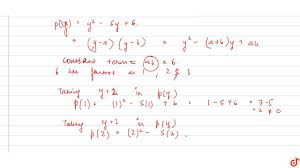 p(y) = y² - 5y + 6.
(y-a)(y-b) = y² - (a+b)y + ab.
Constant term = ab = 6.
6 has factors 1, 2 & 3
Taking y=1 in p(y)
p(1) = (1)² - 5(1) + 6 = 1-5+6 = 7-5
= 2 ≠ 0
Taking y=2 in p(y)
p(2) = (2)² - 5(2)